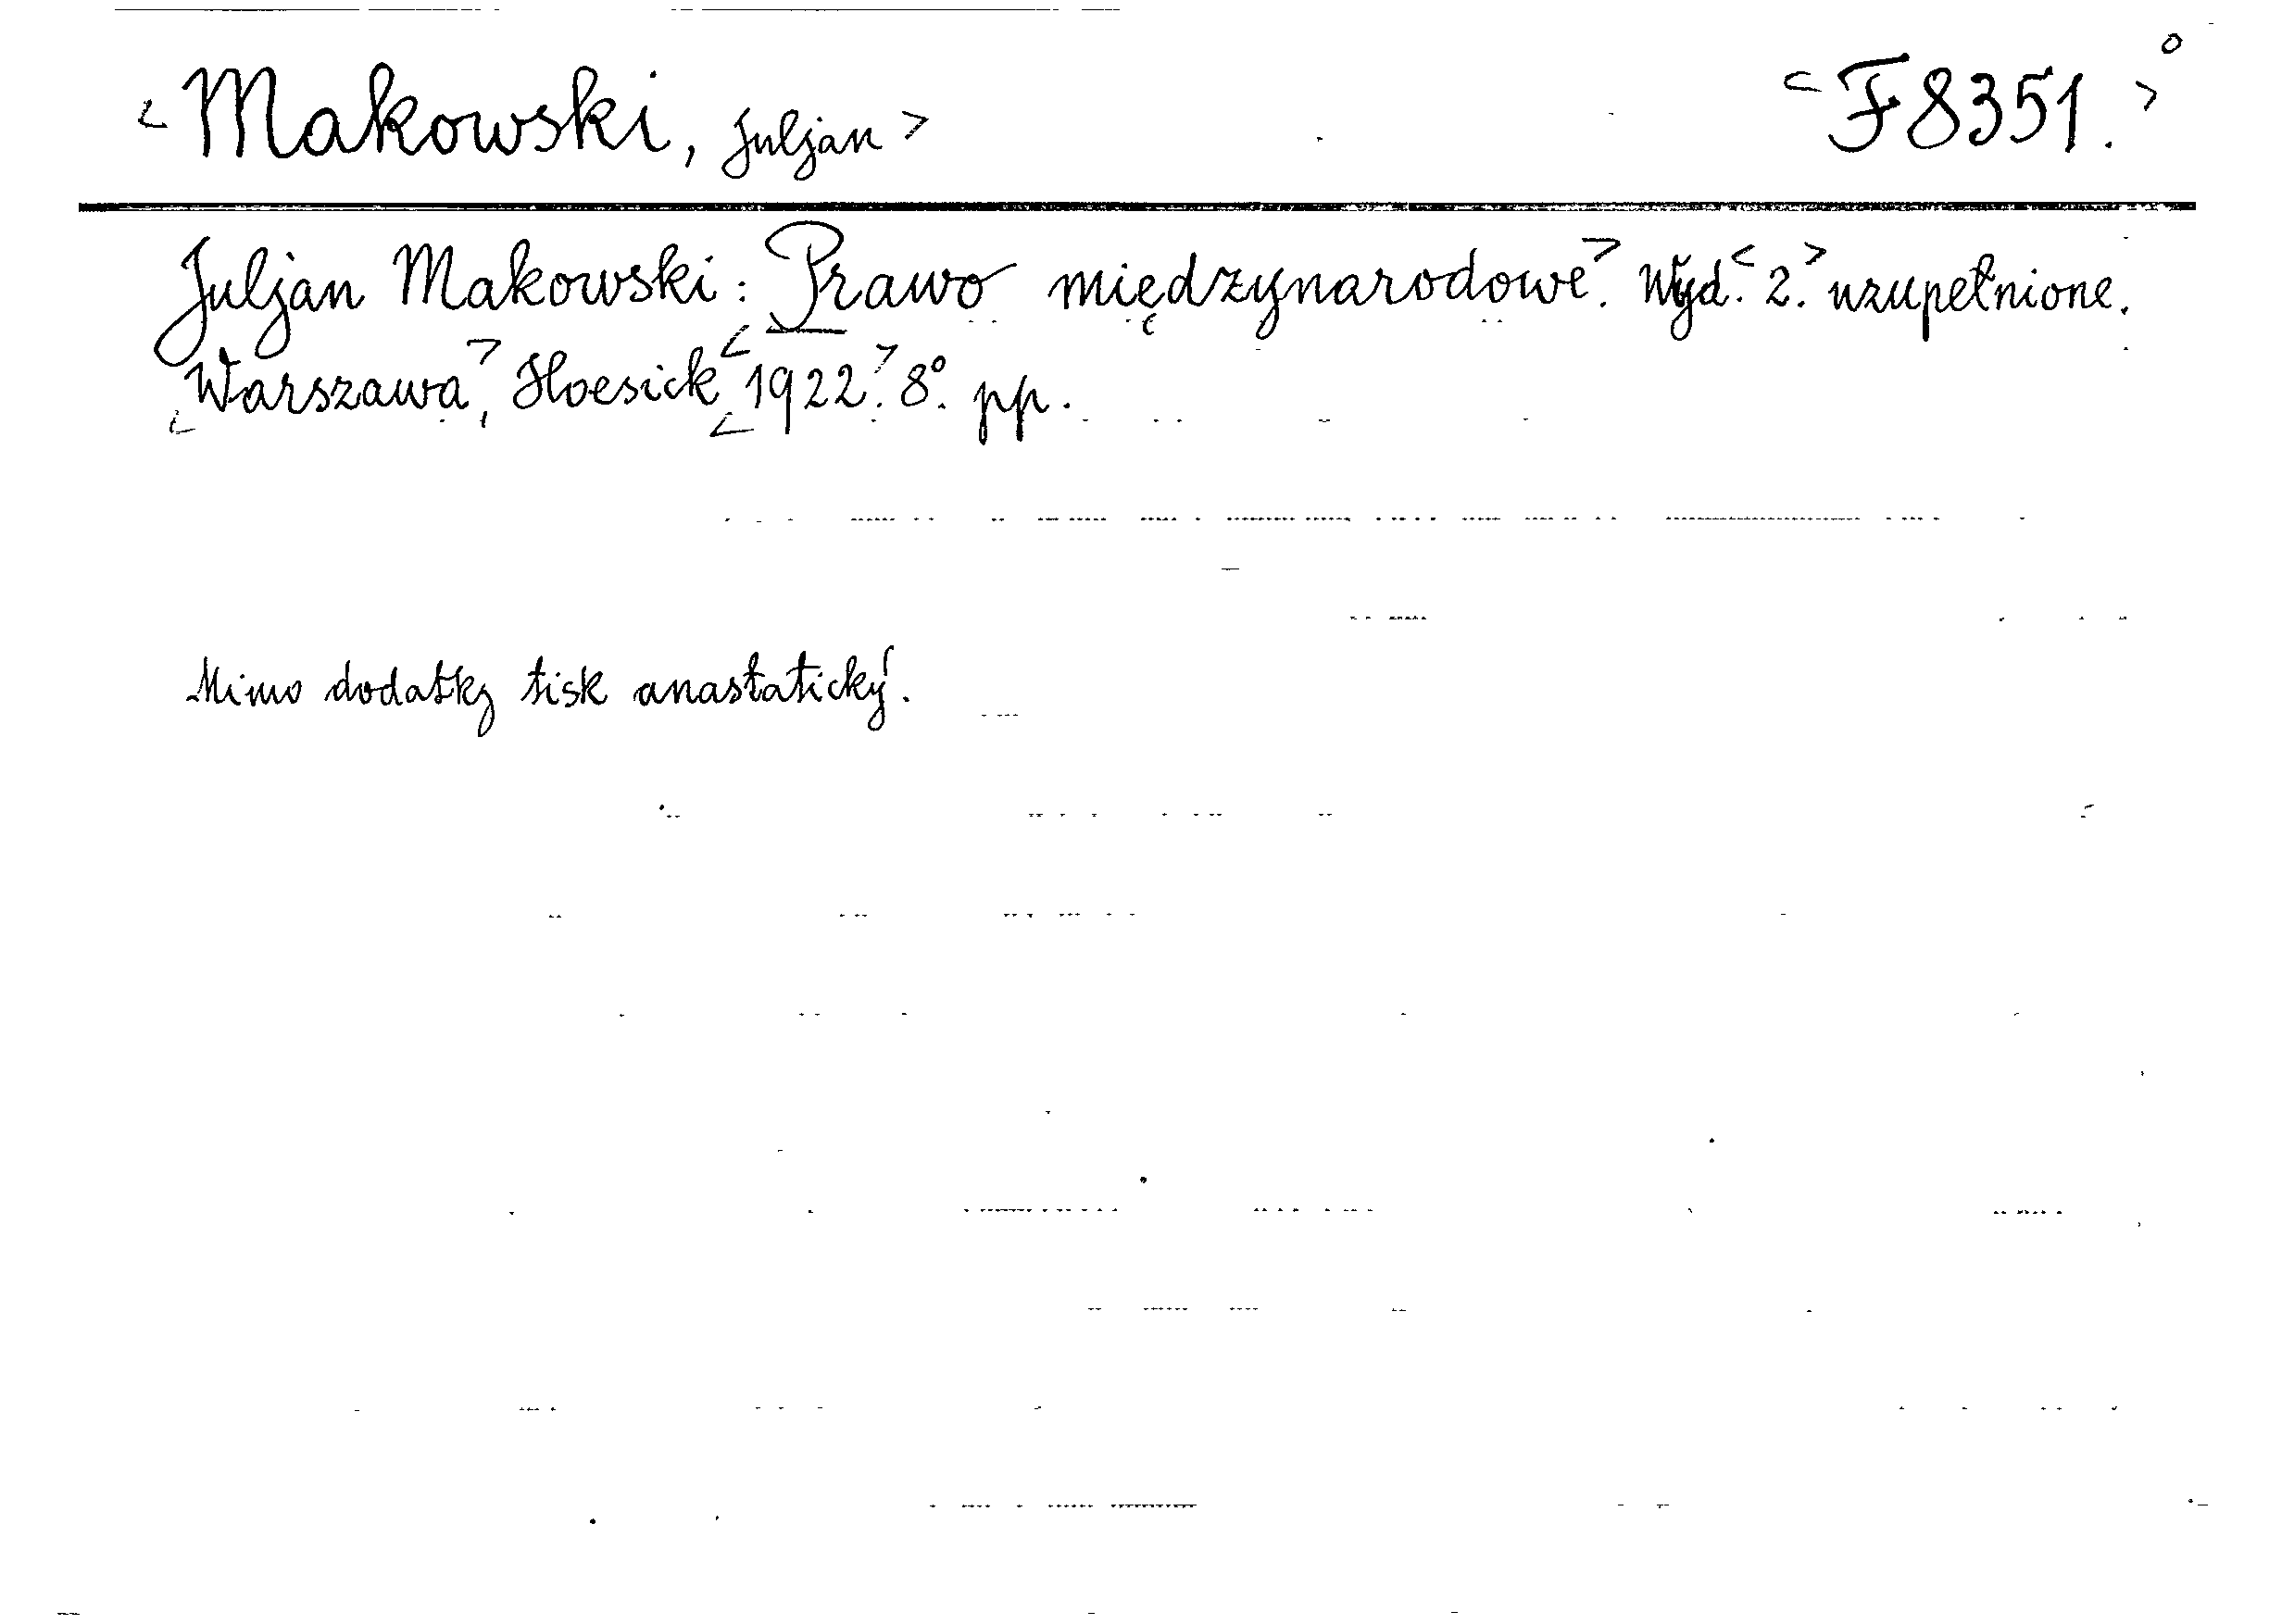 Makowski, Juljan
F 8351.
Juljan Makowski: Prawo międzynarodowe. Wyd. 2. uzupełnione.
Warszawa, Hoesick 1922. 8°. pp.
Mimo dodatky tisk anastatický.